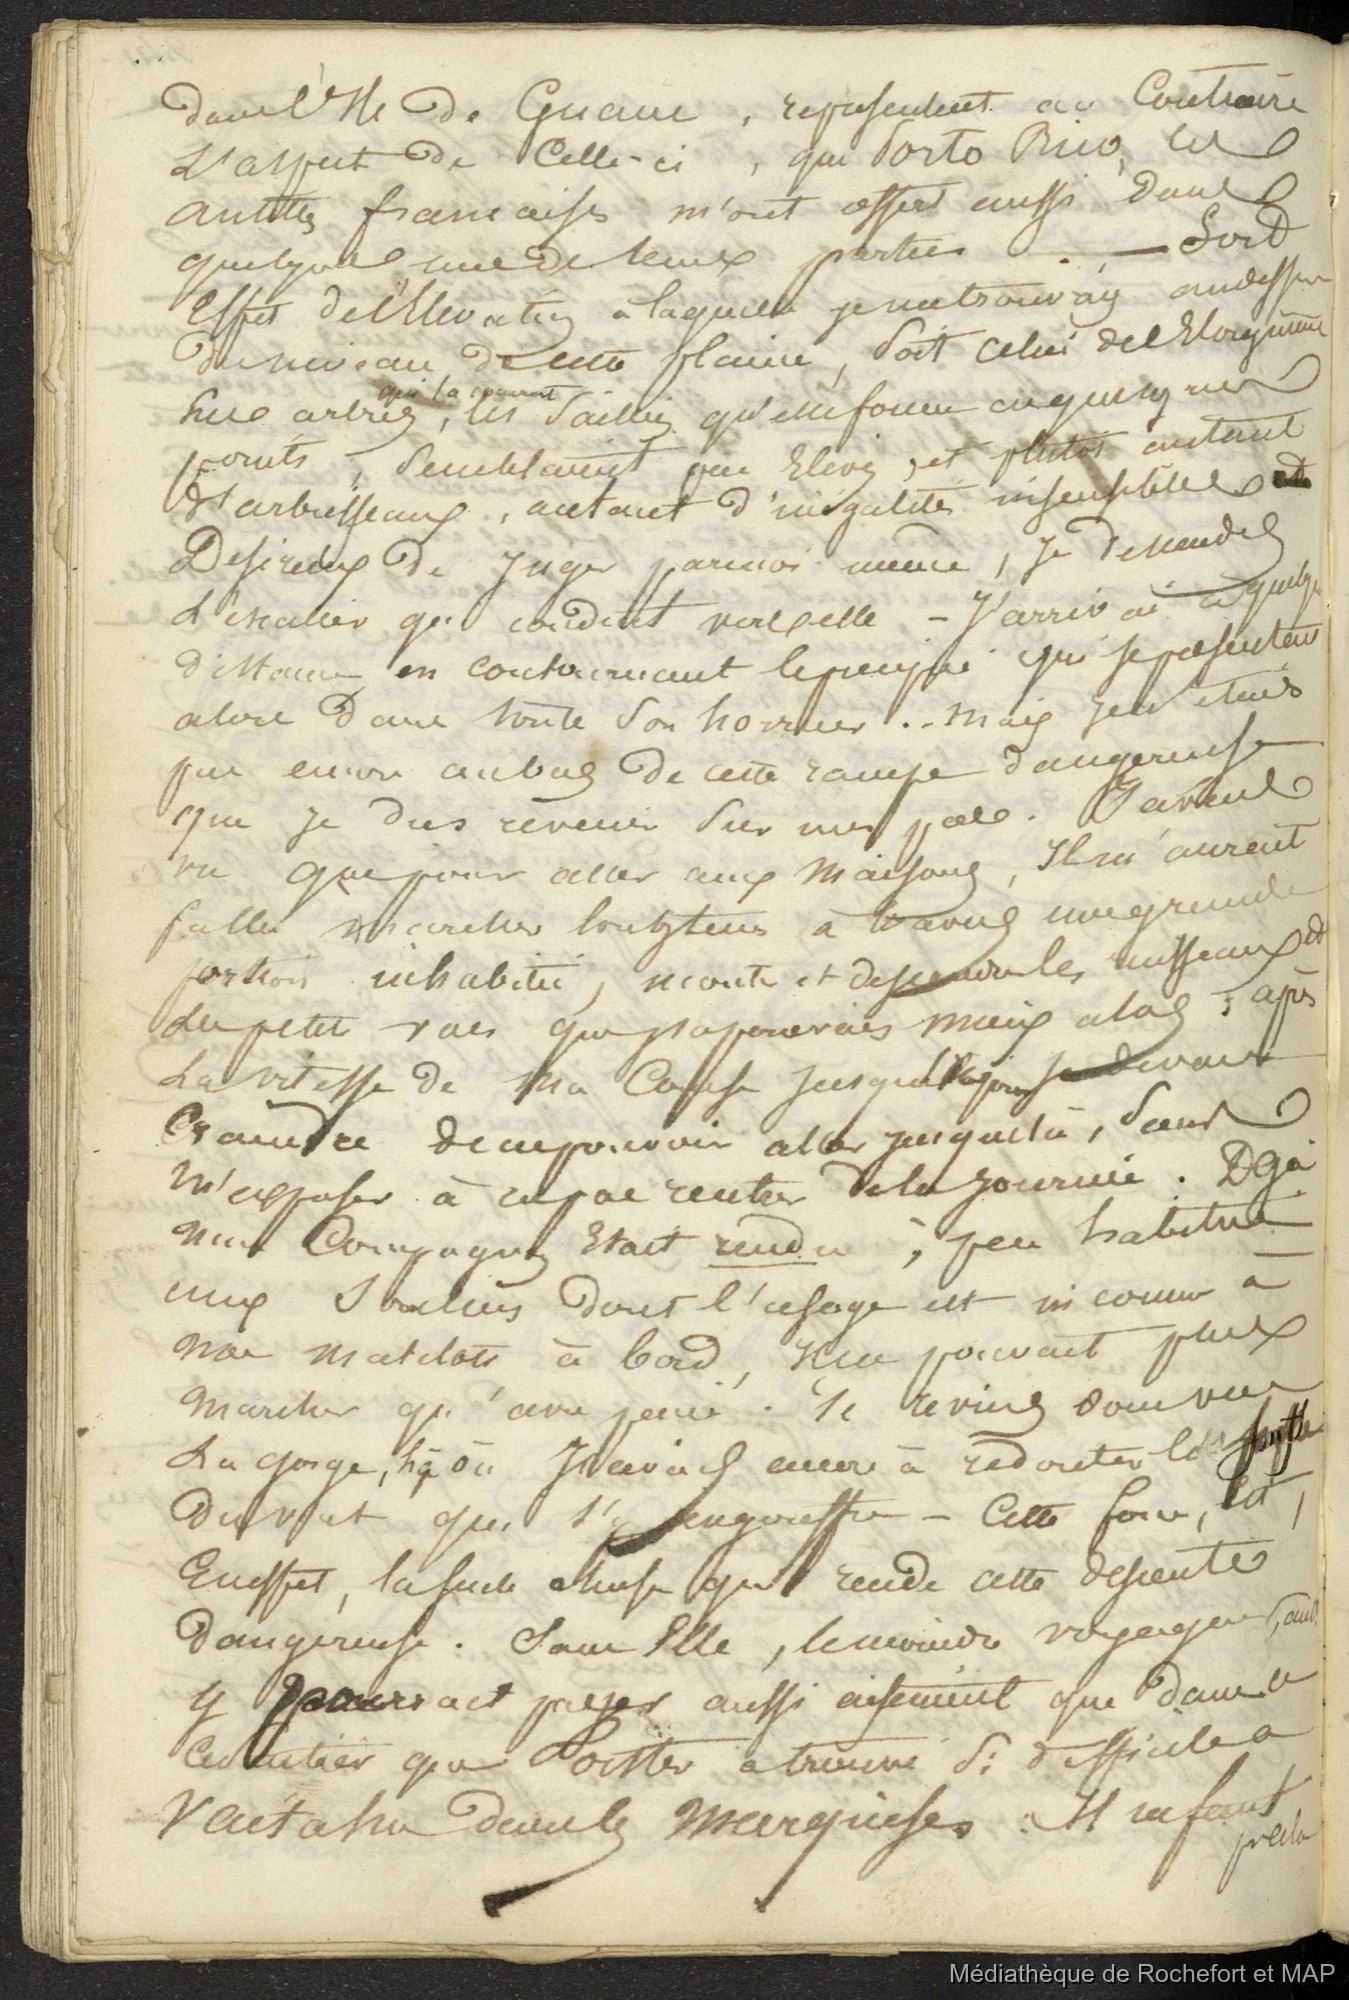 dans l'Ile de Guam, representent au Contraire
L'aspect de Celle-ci, que Porto Rico, les
antilles francaises m'ont offert aussi dans
quelques une de leurs parties. — Soit
Effet de l'Elevation a laquelle je me trouvais au dessus
du niveau de cette plaine, soit celui de l'Eloignement
les arbres qui la couvrent, les saillies qu'elle forme en quelques
points, semblaient peu Elevés, et plutot autant
d'arbrisseaux, autant d'inégalités insensibles
Desireux de Juger par moi même, je descendis
L'escalier qui conduit vers elle – J'arrivai à quelque
distance en contournant le precipice qui se presentait
alors dans toute son horreur .. mais j'en etais
peu encore au bas de cette rampe dangereuse
que je dus revenir sur mes pas. J'avais
vu que pour aller aux Maisons, Il m'aurait
fallu marcher longtems à travers une grande
portion inhabitée, monter et descendre les ruisseaux et
les petits que j'appercevais mieux alors ; après
La vitesse de Ma Course jusque je devais
Craindre de ne pouvoir aller jusque là, sans
M'exposer à ne pas rentrer de la journée. Deja
mon Compagnon Etait rendu ; peu habitué
aux Souliers dont l'usage est inconnu à
nos matelots à bord, Il ne pouvait plus
Marcher qu'avec peine. Je revins donc vers
La gorge, là où J'avais encore à redouter le souffle
du vent qui s'y engouffre – Cette force, est,
En effet, la seule chose qui rende cette descente
dangereuse. Sans Elle, le moindre voyageur,
y pourrait passer aussi aisement que dans le
Sentier que Porter a trouvé si difficile a
dans les Marquises. Il ne faut